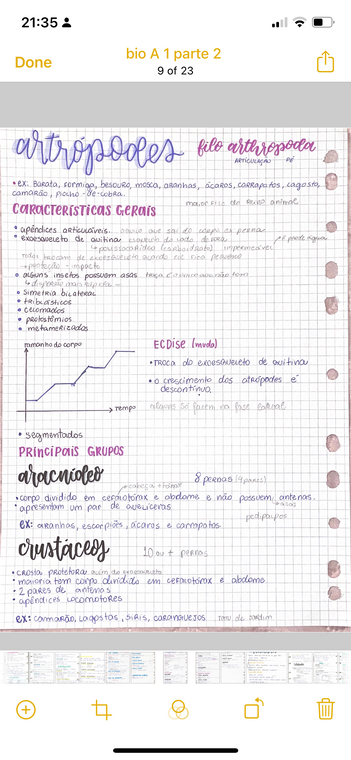 21:35
Done
bio A 1 parte 2
9 of 23
artrópodes
filo arthropoda
ARTICULAÇÃO PÉ
• ex: Barata, formiga, besouro, mosca, aranhas, ácaros, carrapatos, lagosta,
camarão, piolho-de-cobra.
maior filo do reino animal
CARACTERÍSTICAS GERAIS
• apêndices articuláveis.
• exoesqueleto de quitina
impermeável
→ proteção - impacto
• alguns insetos possuem asas
• simetria bilateral
• triblásticos
• celomados
• protostômios
• metamerizados
tamanho do corpo
tempo
ECDISE (muda)
• TROCA do exoesqueleto de quitina
• o crescimento dos atrópodes é
descontínuo
• segmentados
PRINCIPAIS GRUPOS
aracnídeo
8 pernas (4 pares)
• corpo dividido em cefalotórax e abdome e não possuem antenas.
• apresentam um par de quelíceras
pedipalpos
ex: aranhas, escorpiões, ácaros e carrapatos
crustáceos
10 ou + pernas
• crosta protetora
• maioria tem corpo dividido em cefalotórax e abdome
• 2 pares de antenas
• apêndices locomotores
ex: camarão, lagostas, siris, caranguejos